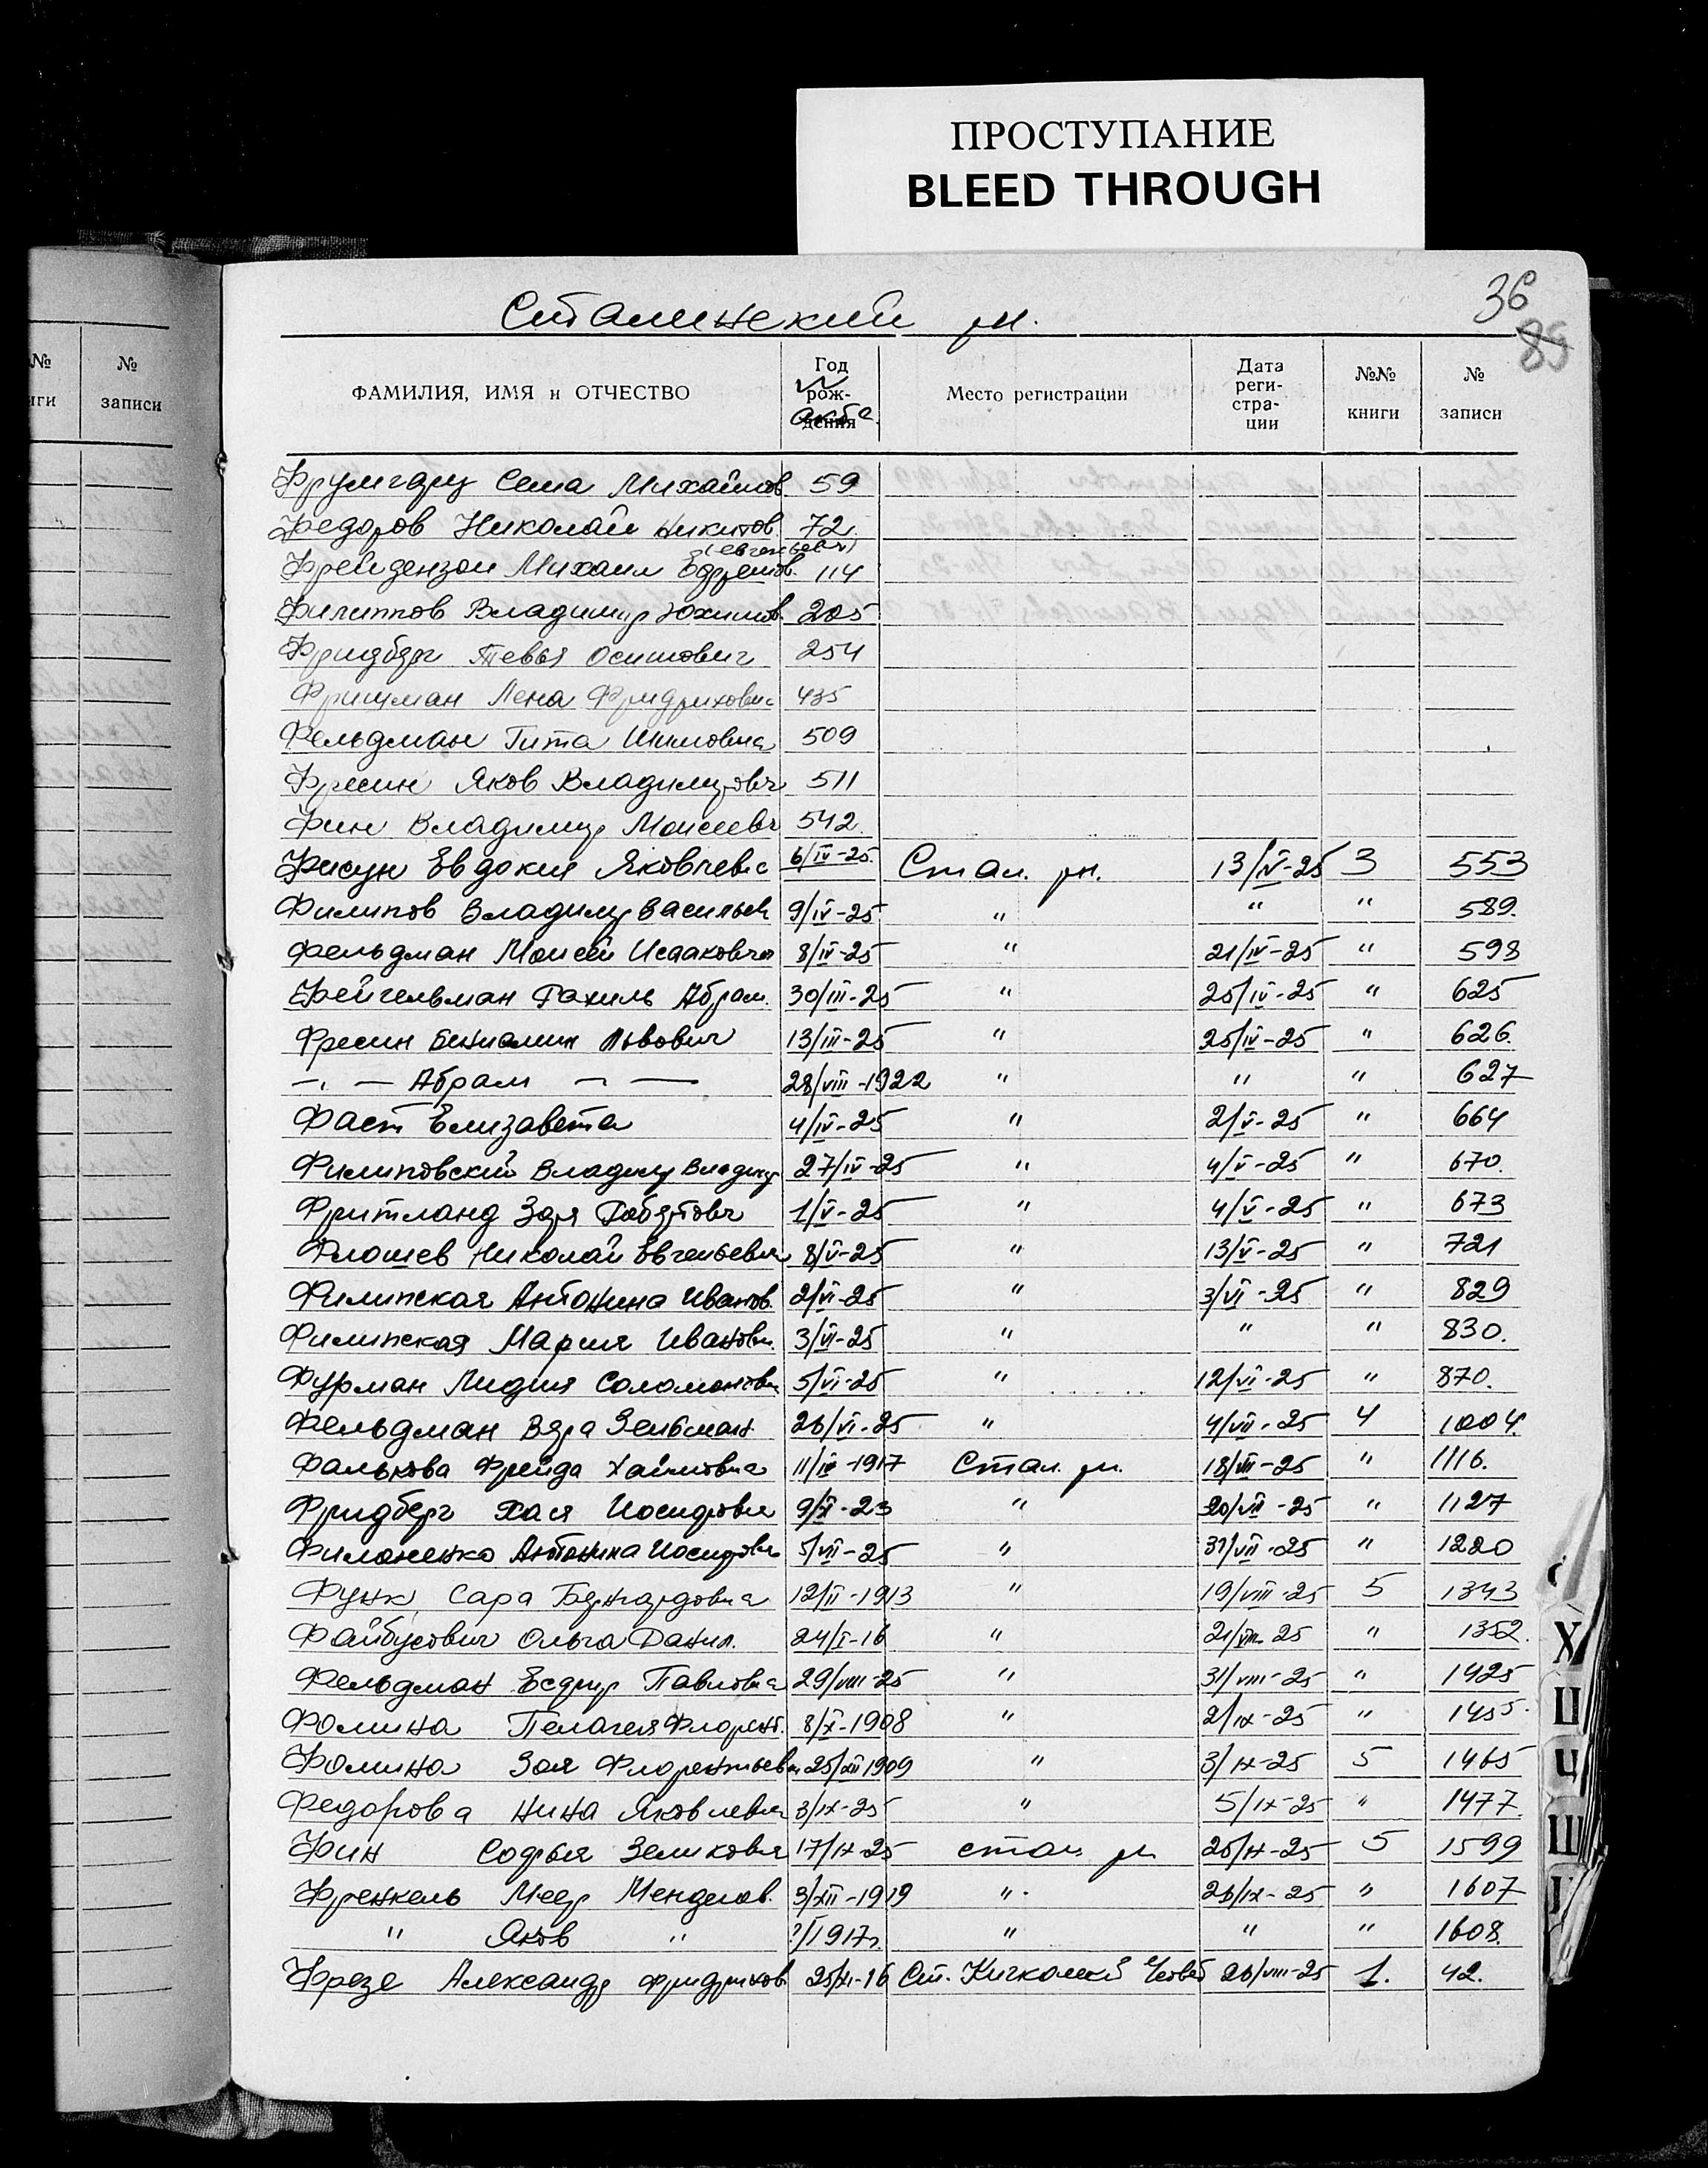 ПРОСТУПАНИЕ
BLEED THROUGH
36
85
Сталинский рн.
ФАМИЛИЯ, ИМЯ и ОТЧЕСТВО Год рождения акта Место регистрации Дата регистрации №№ книги № записи
№ записи
Фрумгарц Сема Михайлов. 59
Федоров Николай Никитов. 72
(евгеньевич)
Фрейдензон Михаил Ефремов. 114
Филиппов Владимир Юхимов. 205
Фридберг Тевья Осипович 254
Фришман Лена Фридриховна 435
Фельдман Гита Шимовна 509
Фресин Яков Владимирович 511
Фин Владимир Моисеевич 542
Фисун Евдокия Яковлевна 6/IV-25. Стал. рн. 13/IV-25 3 553
Филипов Владимир Васильев 9/IV-25 " " " 589.
Фельдман Моисей Исаакович 8/IV-25 " 21/IV-25 " 598
Фейгельман Рахиль Абрам. 30/III-25 " 25/IV-25 " 625
Фресин Бениамин Львович 13/III-25 " 25/IV-25 " 626.
-"- Абрам - — 28/VIII-1922 " " " 627
Фаст Елизавета 4/IV-25 " 2/V-25 " 664
Филиповский Владимир Владимир 27/IV-25 " 4/V-25 " 670.
Фритланд Заря Робертовн 1/V-25 " 4/V-25 " 673
Флошев Николай Евгеньевич 8/V-25 " 13/V-25 " 721
Филипская Антонина Иванов. 2/VI-25 " 3/VI-25 " 829
Филипская Мария Ивановн. 3/VI-25 " " " 830.
Фурман Лидия Соломоновн 5/VI-25 " 12/VI-25 " 870.
Фельдман Вера Зельман. 26/VI-25 " 4/VII-25 4 1004.
Фалькова Фрейда Хаимовна 11/IV-1917 Стал. рн. 18/VII-25 " 1116.
Фридберг Хася Иосифовн 9/X-23 " 20/VII-25 " 1127
Филоненко Антонина Иосифовн 5/VII-25 " 31/VII-25 " 1220
Функ Сара Бернгардовна 12/II-1913 " 19/VIII-25 5 1343
Файбусович Ольга Данил. 24/I-16 " 21/VIII-25 " 1352.
Фельдман Есфир Павловна 29/VIII-25 " 31/VIII-25 " 1425
Фомина Пелагея Флорент. 8/X-1908 " 2/IX-25 " 1455.
Фомина Зоя Флорентьевн 25/XII 1909 " 3/IX-25 5 1465
Федорова Нина Яковлевн 3/IX-25 " 5/IX-25 " 1477
Фин Софья Зеликовн 17/IX-25 Стал рн 25/IX-25 5 1599
Френкель Меер Менделов. 3/XII-1919 " 26/IX-25 " 1607
" Яков " ?/I 917г. " " " 1608.
Фрезе Александр Фридрихов. 25/XI-16 Ст. Кичкаский 26/VIII-25 1. 42.
Х
Ц
Ч
Ш